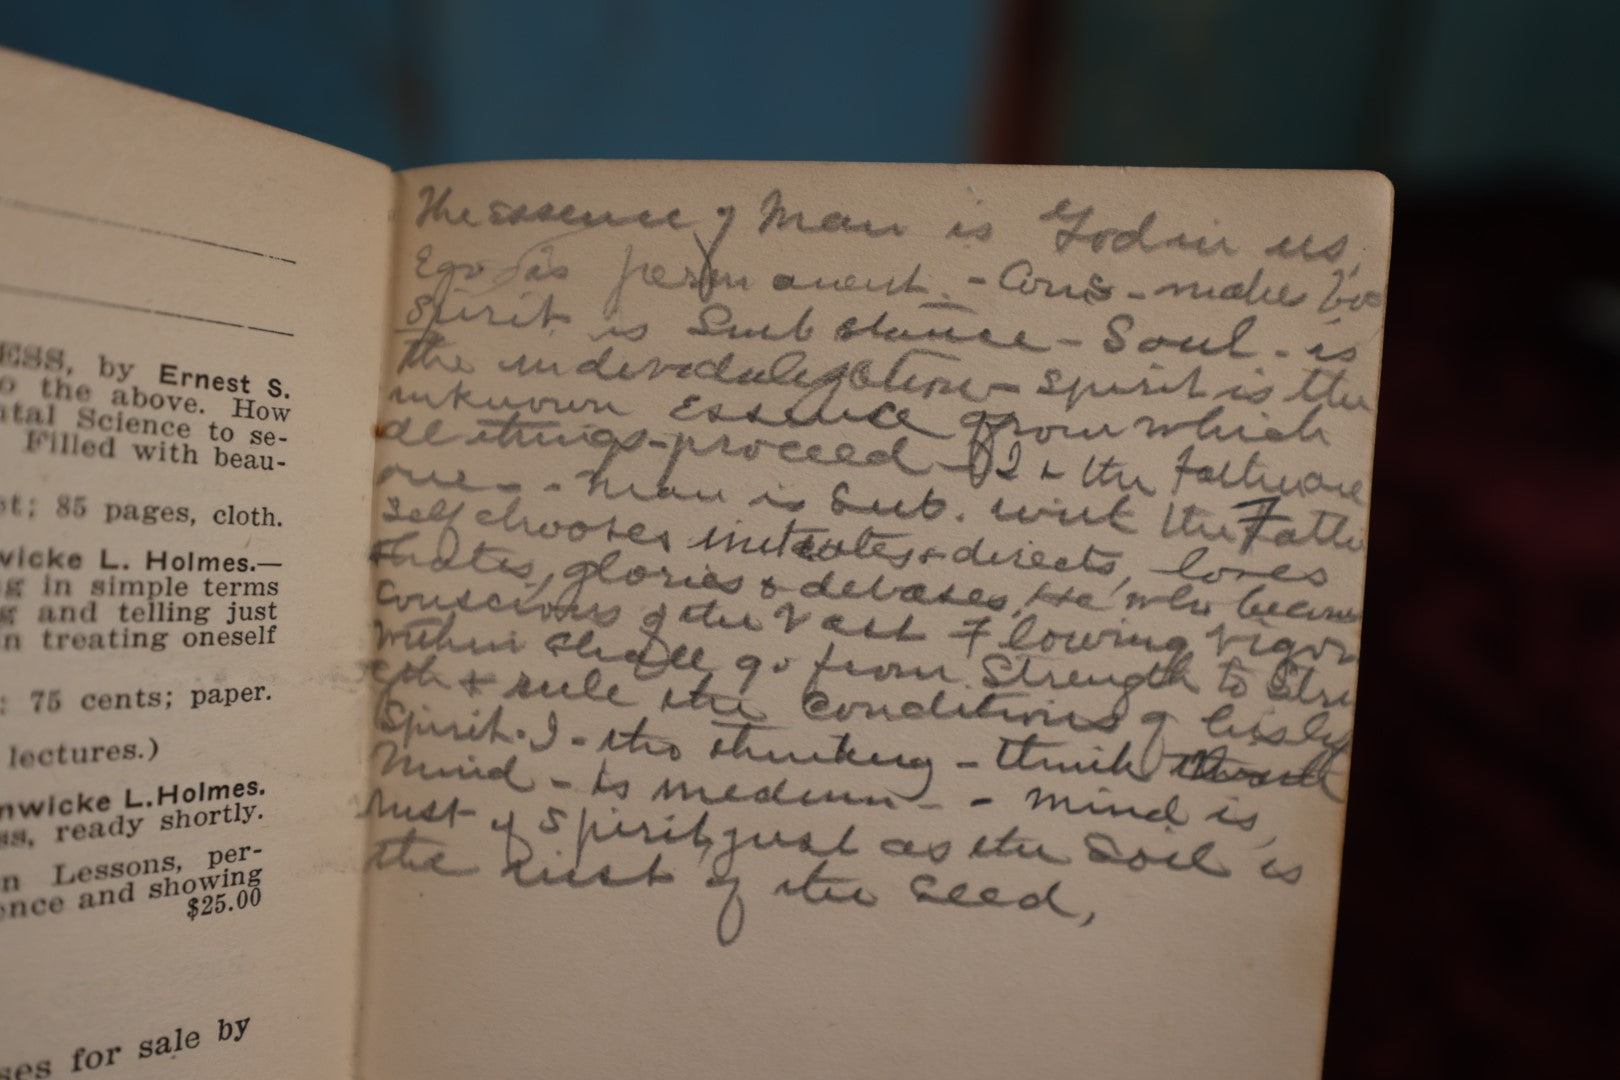 ESS, by Ernest S.
o the above. How
ntal Science to se-
Filled with beau-
t; 85 pages, cloth.
wicke L. Holmes.—
g in simple terms
g and telling just
n treating oneself
: 75 cents; paper.
lectures.)
nwicke L. Holmes.
ss, ready shortly.
n Lessons, per-
ence and showing
$25.00
ses for sale by
The essence of Man is God in us,
Ego is permanent. - Cons - makes
Spirit is Substance - Soul - is
the spirit is the
unknown Essence from which
all things - proceed - I & the Father are
one - - Man is Sub. with the Fathe
Self chooses & directs, loves
& hates, glories & debases, He who becomes
conscious of the Vast Flowing Vigor
within shall go from Strength to Stre
gth & rule the conditions of
Spirit. I - the thinking - think
Mind - is medium - - Mind is
of Spirit, just as the Soil is
the of the Seed,